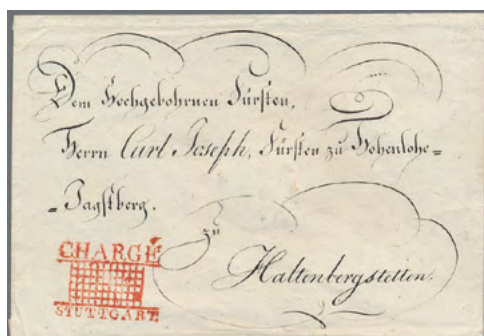 Dem Hochgebohrnen Fürsten,
Herrn Carl Joseph, Fürsten zu Hohenlohe=
=Jagstberg.
zu
Haltenbergstetten.
CHARGÉ
STUTTGART